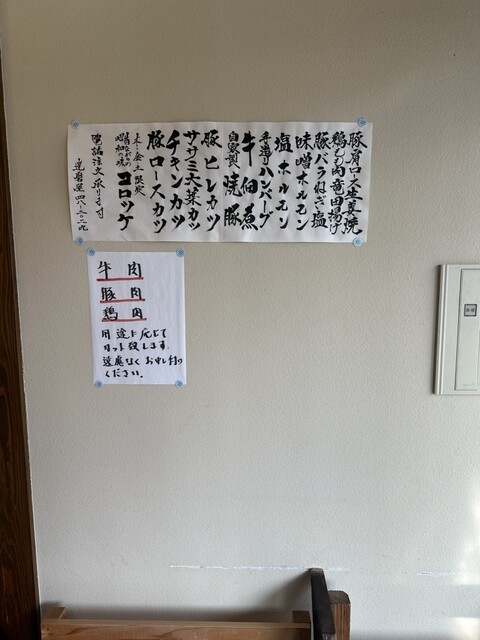 豚肩ロース生姜焼
鶏もも肉竜田揚げ
豚バラねぎ塩
味噌ホルモン
塩ホルモン
手造りハンバーグ
牛佃煮
自家製 焼豚
豚ヒレカツ
ササミ大葉カツ
チキンカツ
豚ロースカツ
木・金・土 限定
昔ながらの
昭和の味 コロッケ
電話注文承ります
牛肉
豚肉
鶏肉
用途に応じて
カット致します。
遠慮なくお申し付け
ください。